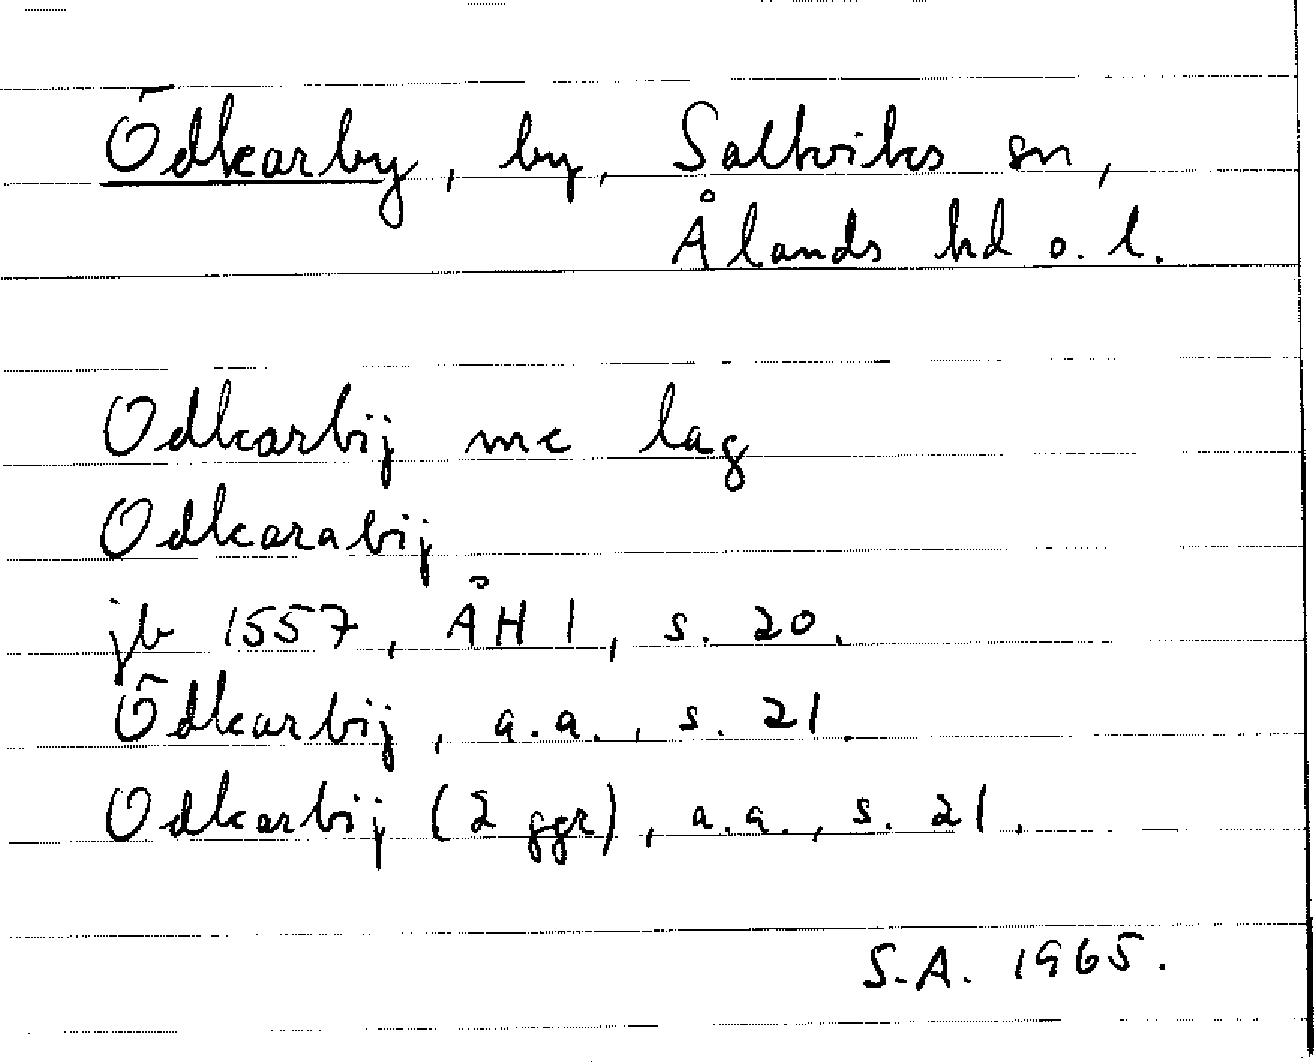 Ödkarby, by, Saltviks sn,
Ålands hd o. l.
Odkarbij mc lag
Odkarabij
jb 1557, ÅH 1, s. 20.
Ödkarbij, a.a., s. 21.
Odkarbij (2 ggr), a.a., s. 21.
S.A. 1965.